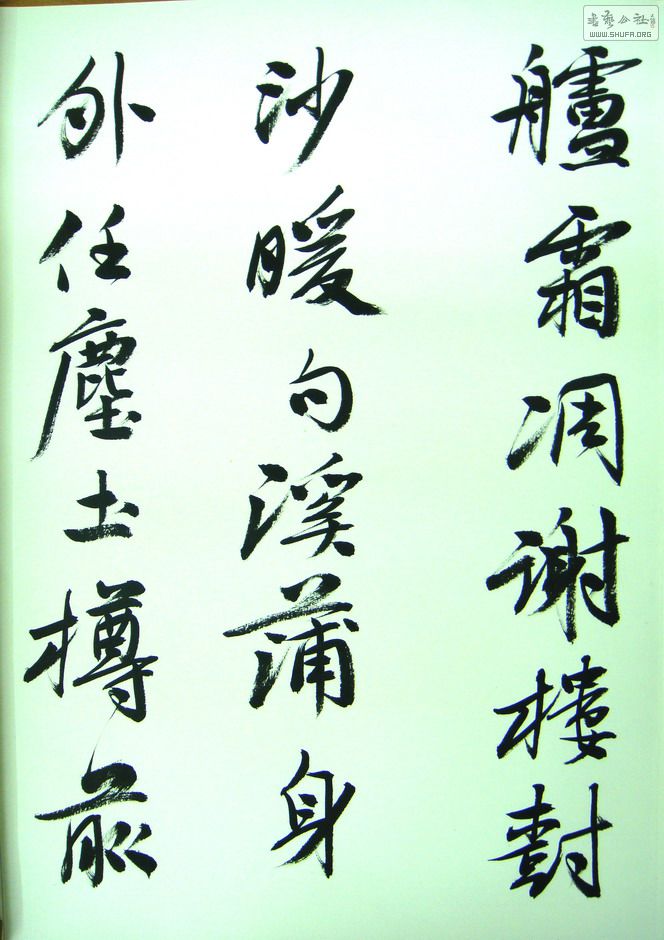 艫霜凋谢樓尌
沙暖句溪蒲身
外任塵土樽前
書藝公社
WWW.SHUFA.ORG